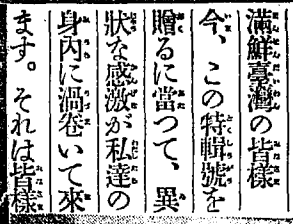 滿鮮臺灣の皆樣
今、この特輯號を
贈るに當つて、異
狀な感激が私達の
身內に渦卷いて來
ます。それは皆樣